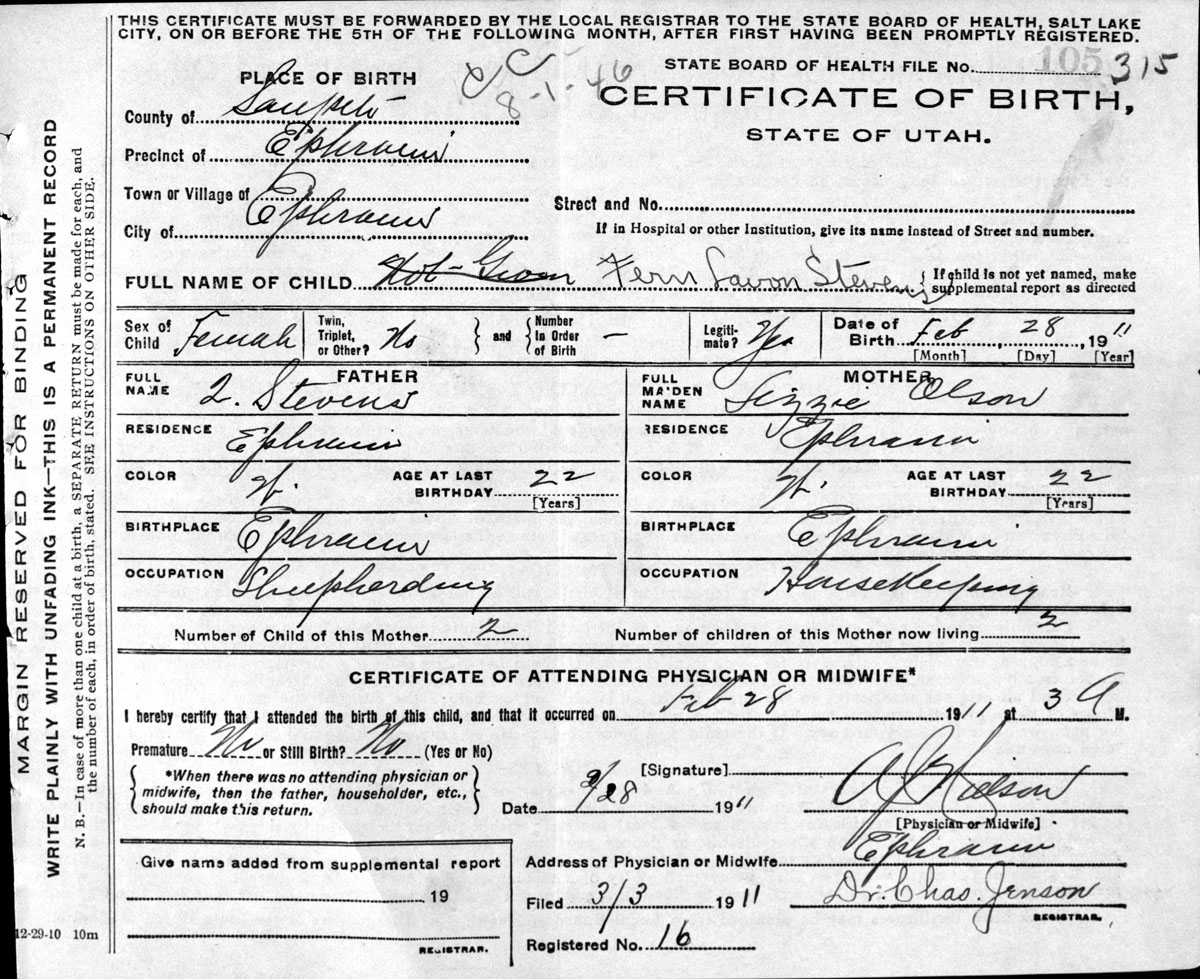 THIS CERTIFICATE MUST BE FORWARDED BY THE LOCAL REGISTRAR TO THE STATE BOARD OF HEALTH, SALT LAKE
CITY, ON OR BEFORE THE 5TH OF THE FOLLOWING MONTH, AFTER FIRST HAVING BEEN PROMPTLY REGISTERED.
STATE BOARD OF HEALTH FILE No. 105 315
PLACE OF BIRTH
8-1-46
CERTIFICATE OF BIRTH,
STATE OF UTAH.
County of Sanpete
Precinct of Ephraim
Town or Village of
City of Ephraim
Street and No.
If in Hospital or other Institution, give its name instead of Street and number.
FULL NAME OF CHILD Not Given Fern Lavon Stevens { If child is not yet named, make
supplemental report as directed
Sex of Child Female Twin, Triplet, or Other? No } and { Number In Order of Birth — Legiti-mate? Yes Date of Birth Feb, 28, 1911
[Month] [Day] [Year]
FATHER MOTHER
FULL NAME Stevens FULL MAIDEN NAME Lizzie Olson
RESIDENCE Ephraim RESIDENCE Ephraim
COLOR W. AGE AT LAST BIRTHDAY 22 COLOR W. AGE AT LAST BIRTHDAY 22
[Years] [Years]
BIRTHPLACE Ephraim BIRTHPLACE Ephraim
OCCUPATION Sheepherding OCCUPATION Housekeeping
Number of Child of this Mother 2 Number of children of this Mother now living 2
CERTIFICATE OF ATTENDING PHYSICIAN OR MIDWIFE*
I hereby certify that I attended the birth of this child, and that it occurred on Feb 28 1911 at 3 A M.
Premature No or Still Birth? No (Yes or No)
{ *When there was no attending physician or
midwife, then the father, householder, etc.,
should make this return. }
[Signature] A. J. Nielson
Date 2/28 1911
[Physician or Midwife]
Give name added from supplemental report
19
REGISTRAR.
Address of Physician or Midwife Ephraim
Filed 3/3 1911 Dr. Chas. Jenson
REGISTRAR.
Registered No. 16
12-29-10 10m
MARGIN RESERVED FOR BINDING
WRITE PLAINLY WITH UNFADING INK—THIS IS A PERMANENT RECORD
N. B.—In case of more than one child at a birth, a SEPARATE RETURN must be made for each, and
the number of each, in order of birth, stated. SEE INSTRUCTIONS ON OTHER SIDE.